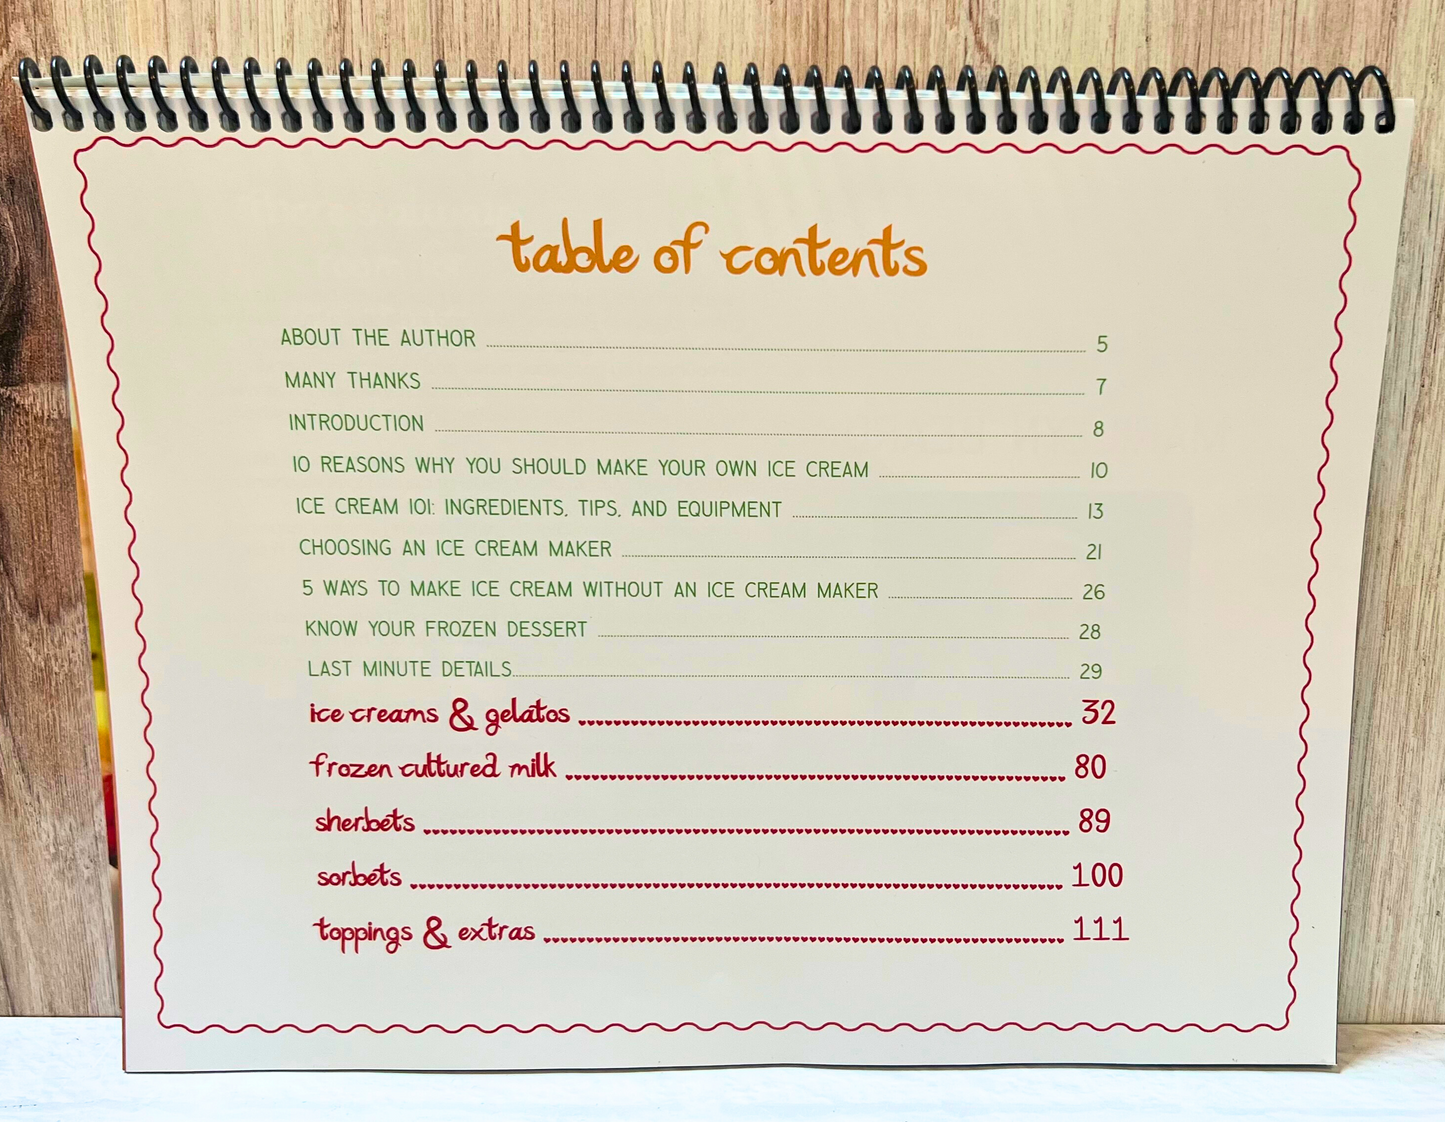 table of contents
ABOUT THE AUTHOR 5
MANY THANKS 7
INTRODUCTION 8
10 REASONS WHY YOU SHOULD MAKE YOUR OWN ICE CREAM 10
ICE CREAM 101: INGREDIENTS, TIPS, AND EQUIPMENT 13
CHOOSING AN ICE CREAM MAKER 21
5 WAYS TO MAKE ICE CREAM WITHOUT AN ICE CREAM MAKER 26
KNOW YOUR FROZEN DESSERT 28
LAST MINUTE DETAILS 29
ice creams & gelatos 32
frozen cultured milk 80
sherbets 89
sorbets 100
toppings & extras 111